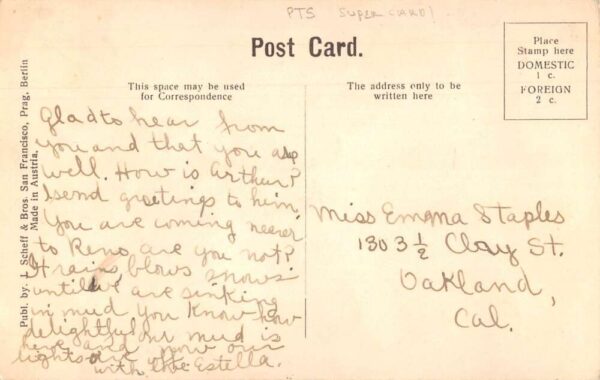 PTS SUPER CARD!
Post Card.
Place
Stamp here
DOMESTIC
1 c.
FOREIGN
2 c.
This space may be used
for Correspondence
The address only to be
written here
Publ. by J. Scheff & Bros. San Francisco, Prag, Berlin
Made in Austria.
Glad to hear from
you and that you are
well. How is Arthur?
I send greetings to him.
You are coming nearer
to Reno are you not?
It rains, blows snows
until we are sinking
in mud you know how
delightful our mud is
here and now our
lights are off.
with love Estella.
Miss Emma Staples
1303½ Clay St.
Oakland,
Cal.